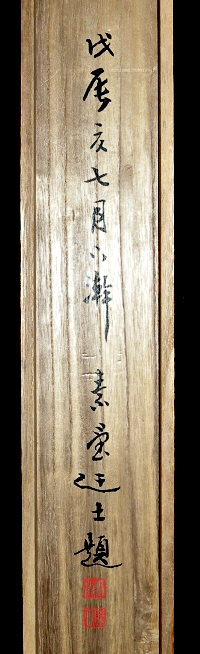 戊辰夏七月小澣 素堂迂士題